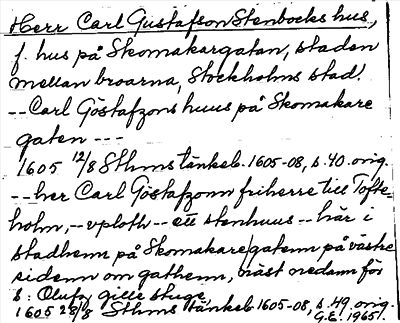 Herr Carl Gustafson Stenbocks hus,
f. hus på Skomakargatan, staden
mellan broarna, Stockholms stad.
-- Carl Göstafzons huus på Skomakare
gaten ---
1605 12/8 Sthms tänkeb. 1605-08, s. 40. orig.
-- her Carl Göstafzonn friherre till Tofte-
holm, -- uploth -- ett stenhuus -- här i
stadhenn på Skomakare gatenn på västre
sidenn om gathenn, näst nedann för
S: Olufz gille stuge,
1605 28/8 Sthms tänkeb. 1605-08, s. 49, orig.
G.E. 1965.